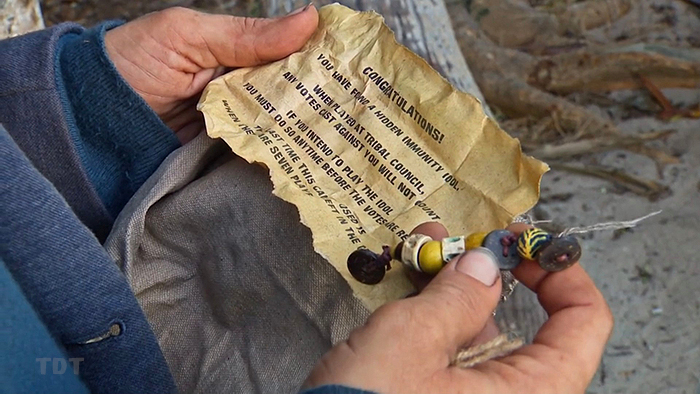 CONGRATULATIONS!
YOU HAVE FOUND A HIDDEN IMMUNITY IDOL.
WHEN PLAYED AT TRIBAL COUNCIL,
ANY VOTES CAST AGAINST YOU WILL NOT COUNT
IF YOU INTEND TO PLAY THE IDOL
YOU MUST DO SO ANYTIME BEFORE THE VOTES ARE RE
LAST TIME THIS CAN USED IS
WHEN THERE ARE SEVEN PLAY LEFT IN THE G
TDT